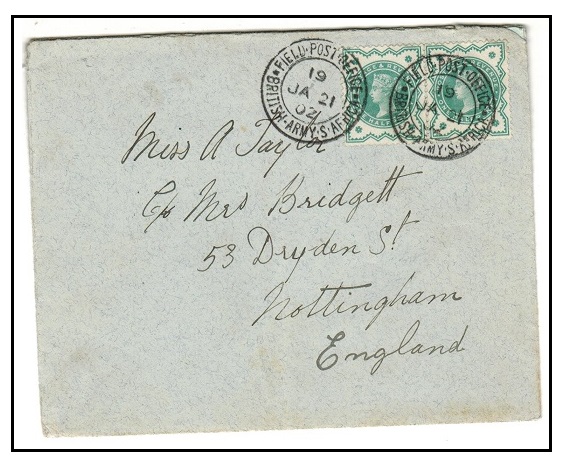 FIELD·POST·OFFICE
19
JA 21
02
BRITISH·ARMY·S·AFRICA
FIELD·POST·OFFICE
19
JA 21
BRITISH·ARMY·S·AFRICA
Miss A Taylor
C/o Mrs Bridgett
53 Dryden St
Nottingham
England